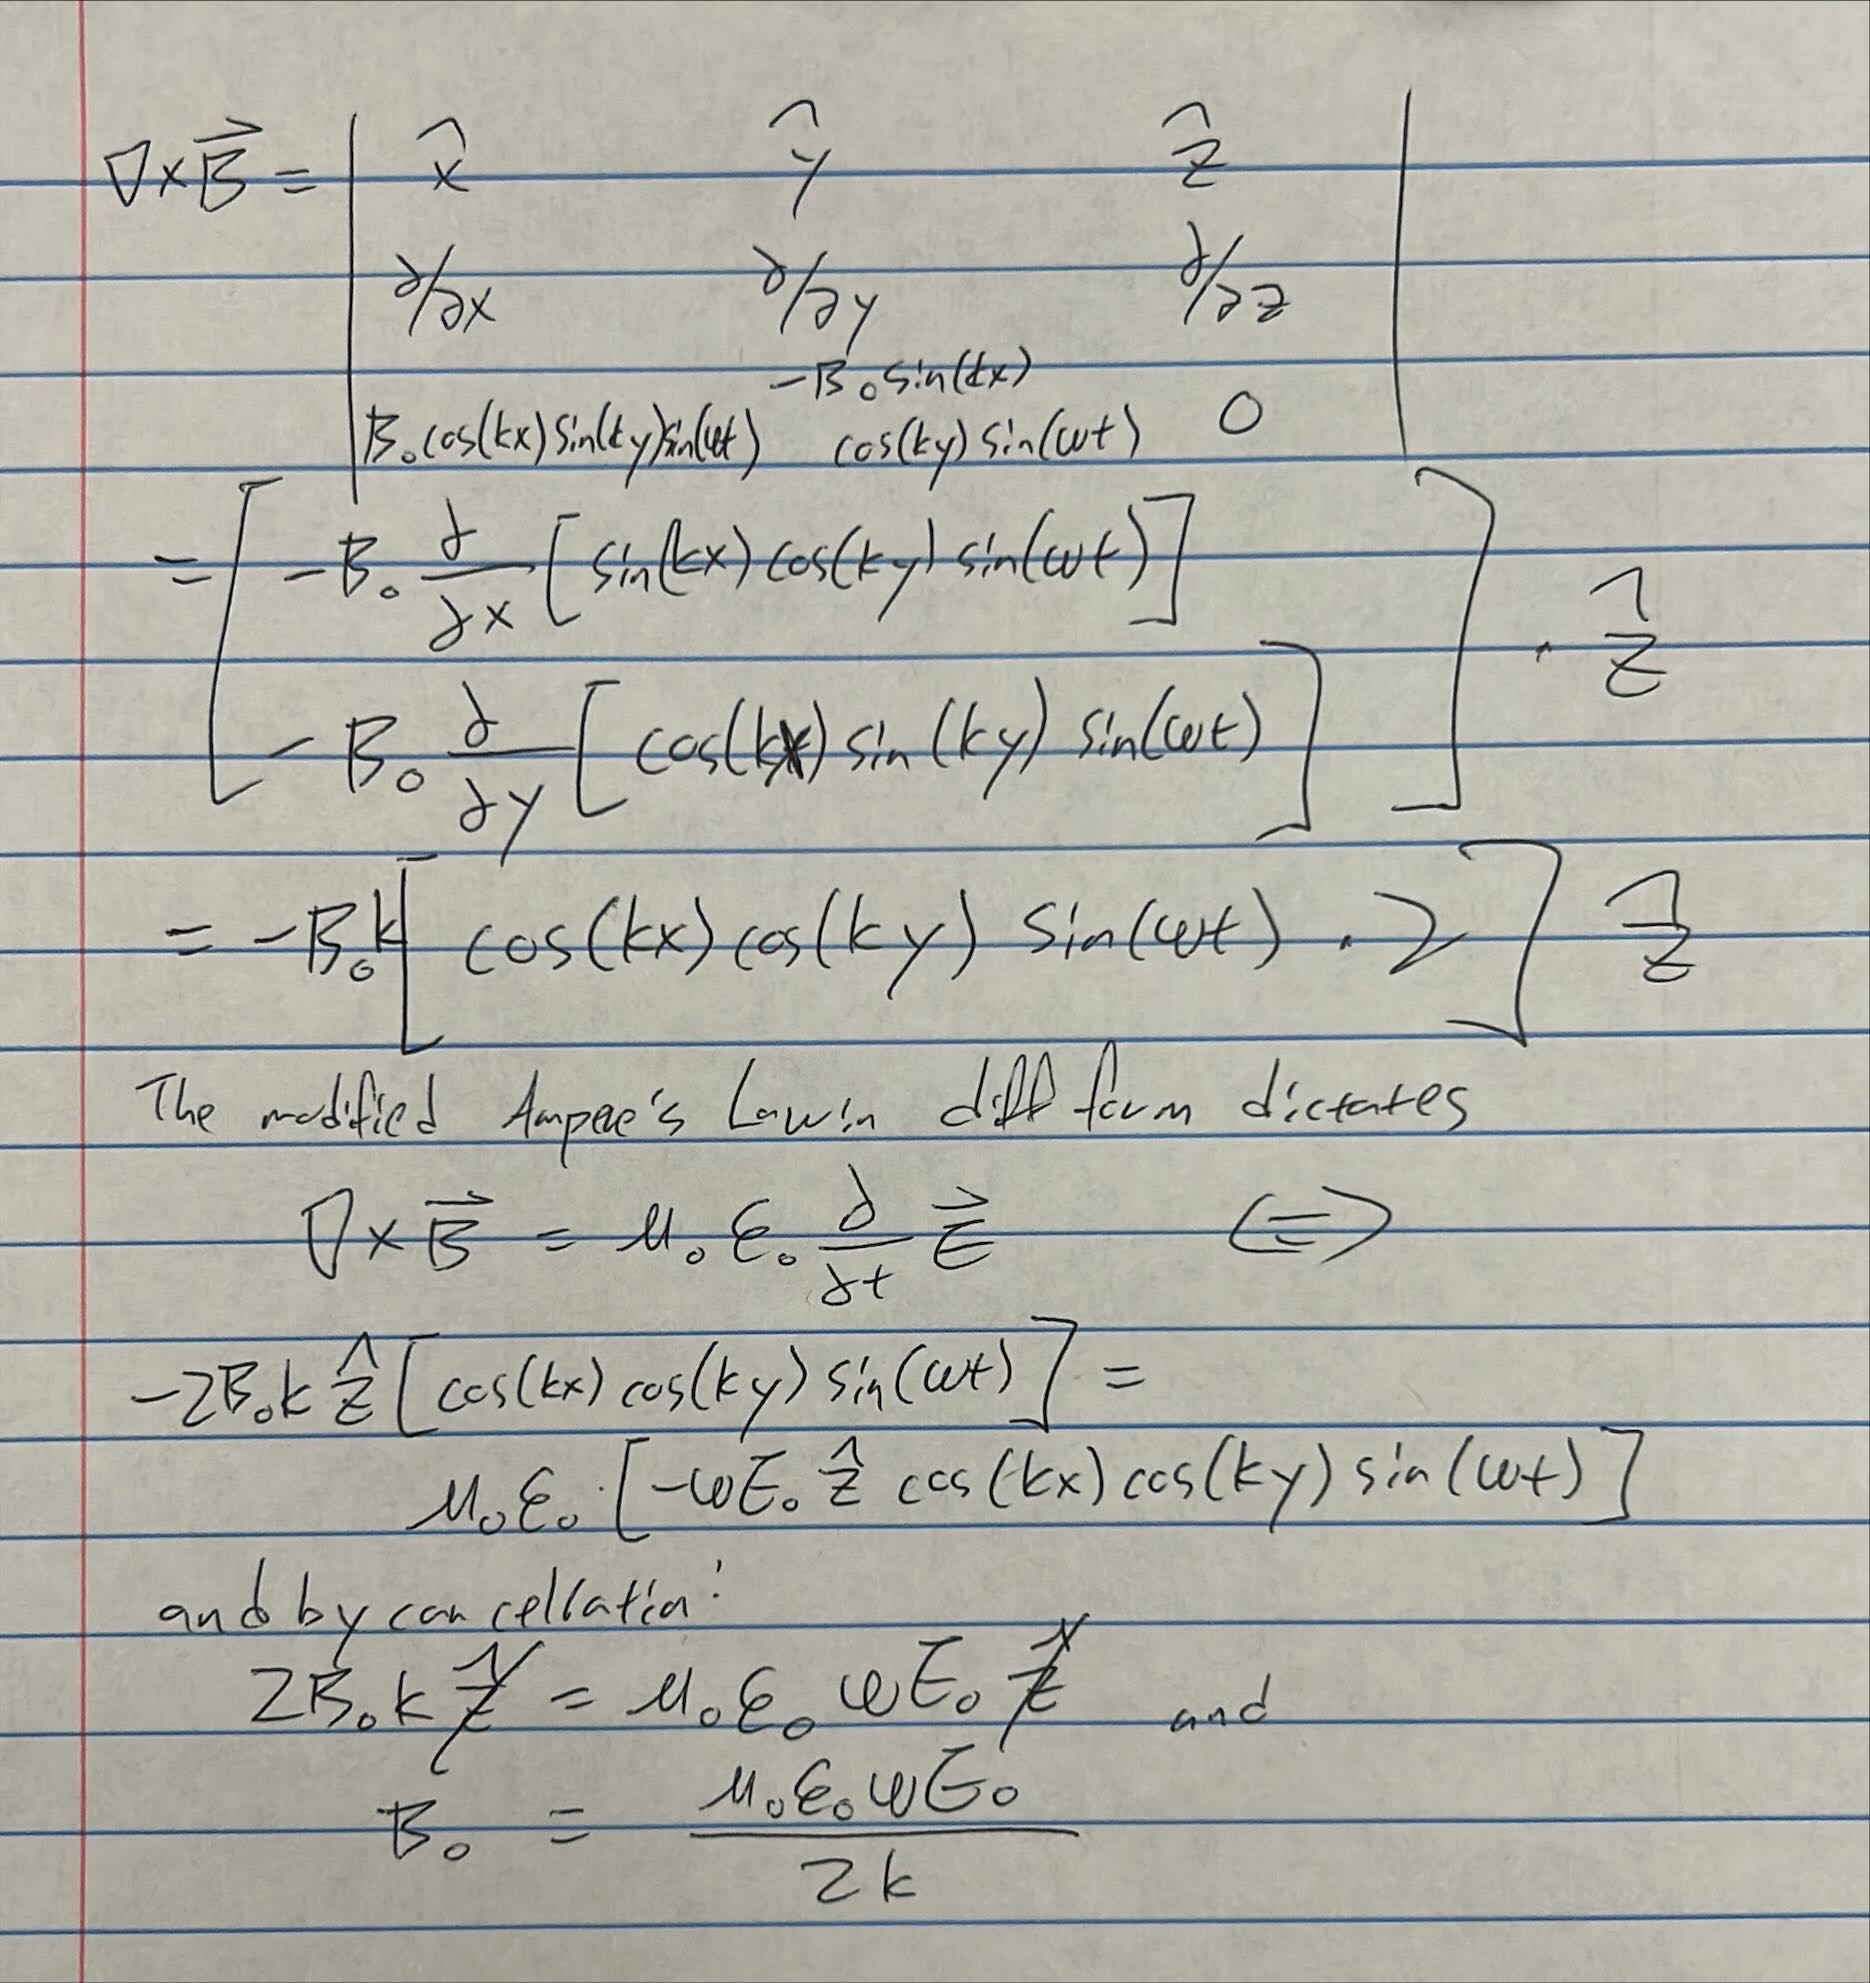 ∇×B⃗ = | x̂ ŷ ẑ |
∂/∂x ∂/∂y ∂/∂z
-B₀sin(kx)
B₀cos(kx)sin(ky)sin(ωt) cos(ky)sin(ωt) 0
= [ -B₀ ∂/∂x [sin(kx)cos(ky)sin(ωt)]
- B₀ ∂/∂y [cos(kx)sin(ky)sin(ωt)] ] · ẑ
= -B₀k[cos(kx)cos(ky)sin(ωt)·2] ẑ
The modified Ampere's Law in diff form dictates
∇×B⃗ = μ₀ε₀ ∂/∂t E⃗ ⟺
-2B₀k ẑ[cos(kx)cos(ky)sin(ωt)] =
μ₀ε₀·[-ωE₀ ẑ cos(kx)cos(ky)sin(ωt)]
and by cancellation:
2B₀k ẑ = μ₀ε₀ωE₀ ẑ and
B₀ = μ₀ε₀ωE₀ / 2k